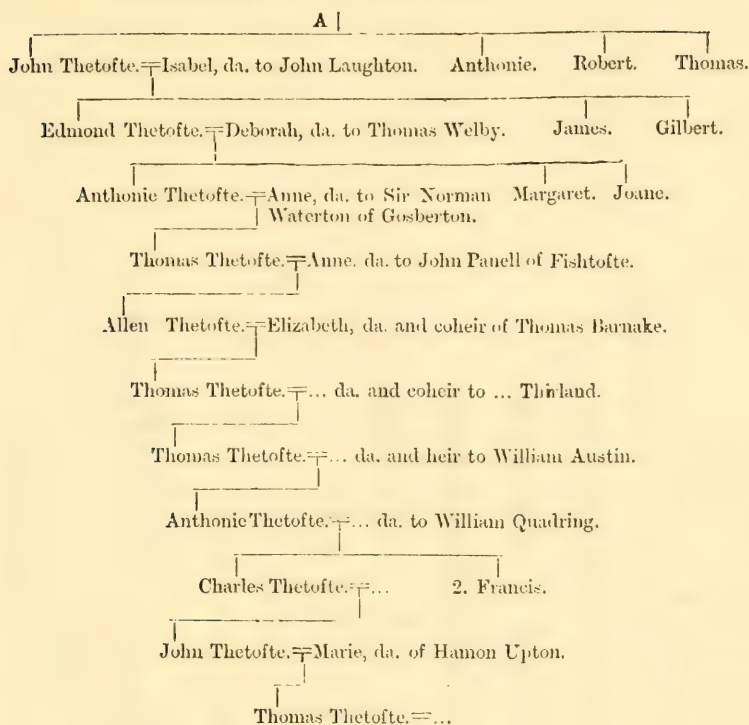 A
John Thetofte.=Isabel, da. to John Laughton. Anthonie. Robert. Thomas.
Edmond Thetofte.=Deborah, da. to Thomas Welby. James. Gilbert.
Anthonie Thetofte.=Anne, da. to Sir Norman Margaret. Joane.
Waterton of Gosberton.
Thomas Thetofte.=Anne. da. to John Panell of Fishtofte.
Allen Thetofte.=Elizabeth, da. and coheir of Thomas Barnake.
Thomas Thetofte.=... da. and coheir to ... Thirland.
Thomas Thetofte.=... da. and heir to William Austin.
Anthonie Thetofte.=... da. to William Quadring.
Charles Thetofte.=... 2. Francis.
John Thetofte.=Marie, da. of Hamon Upton.
Thomas Thetofte.=...